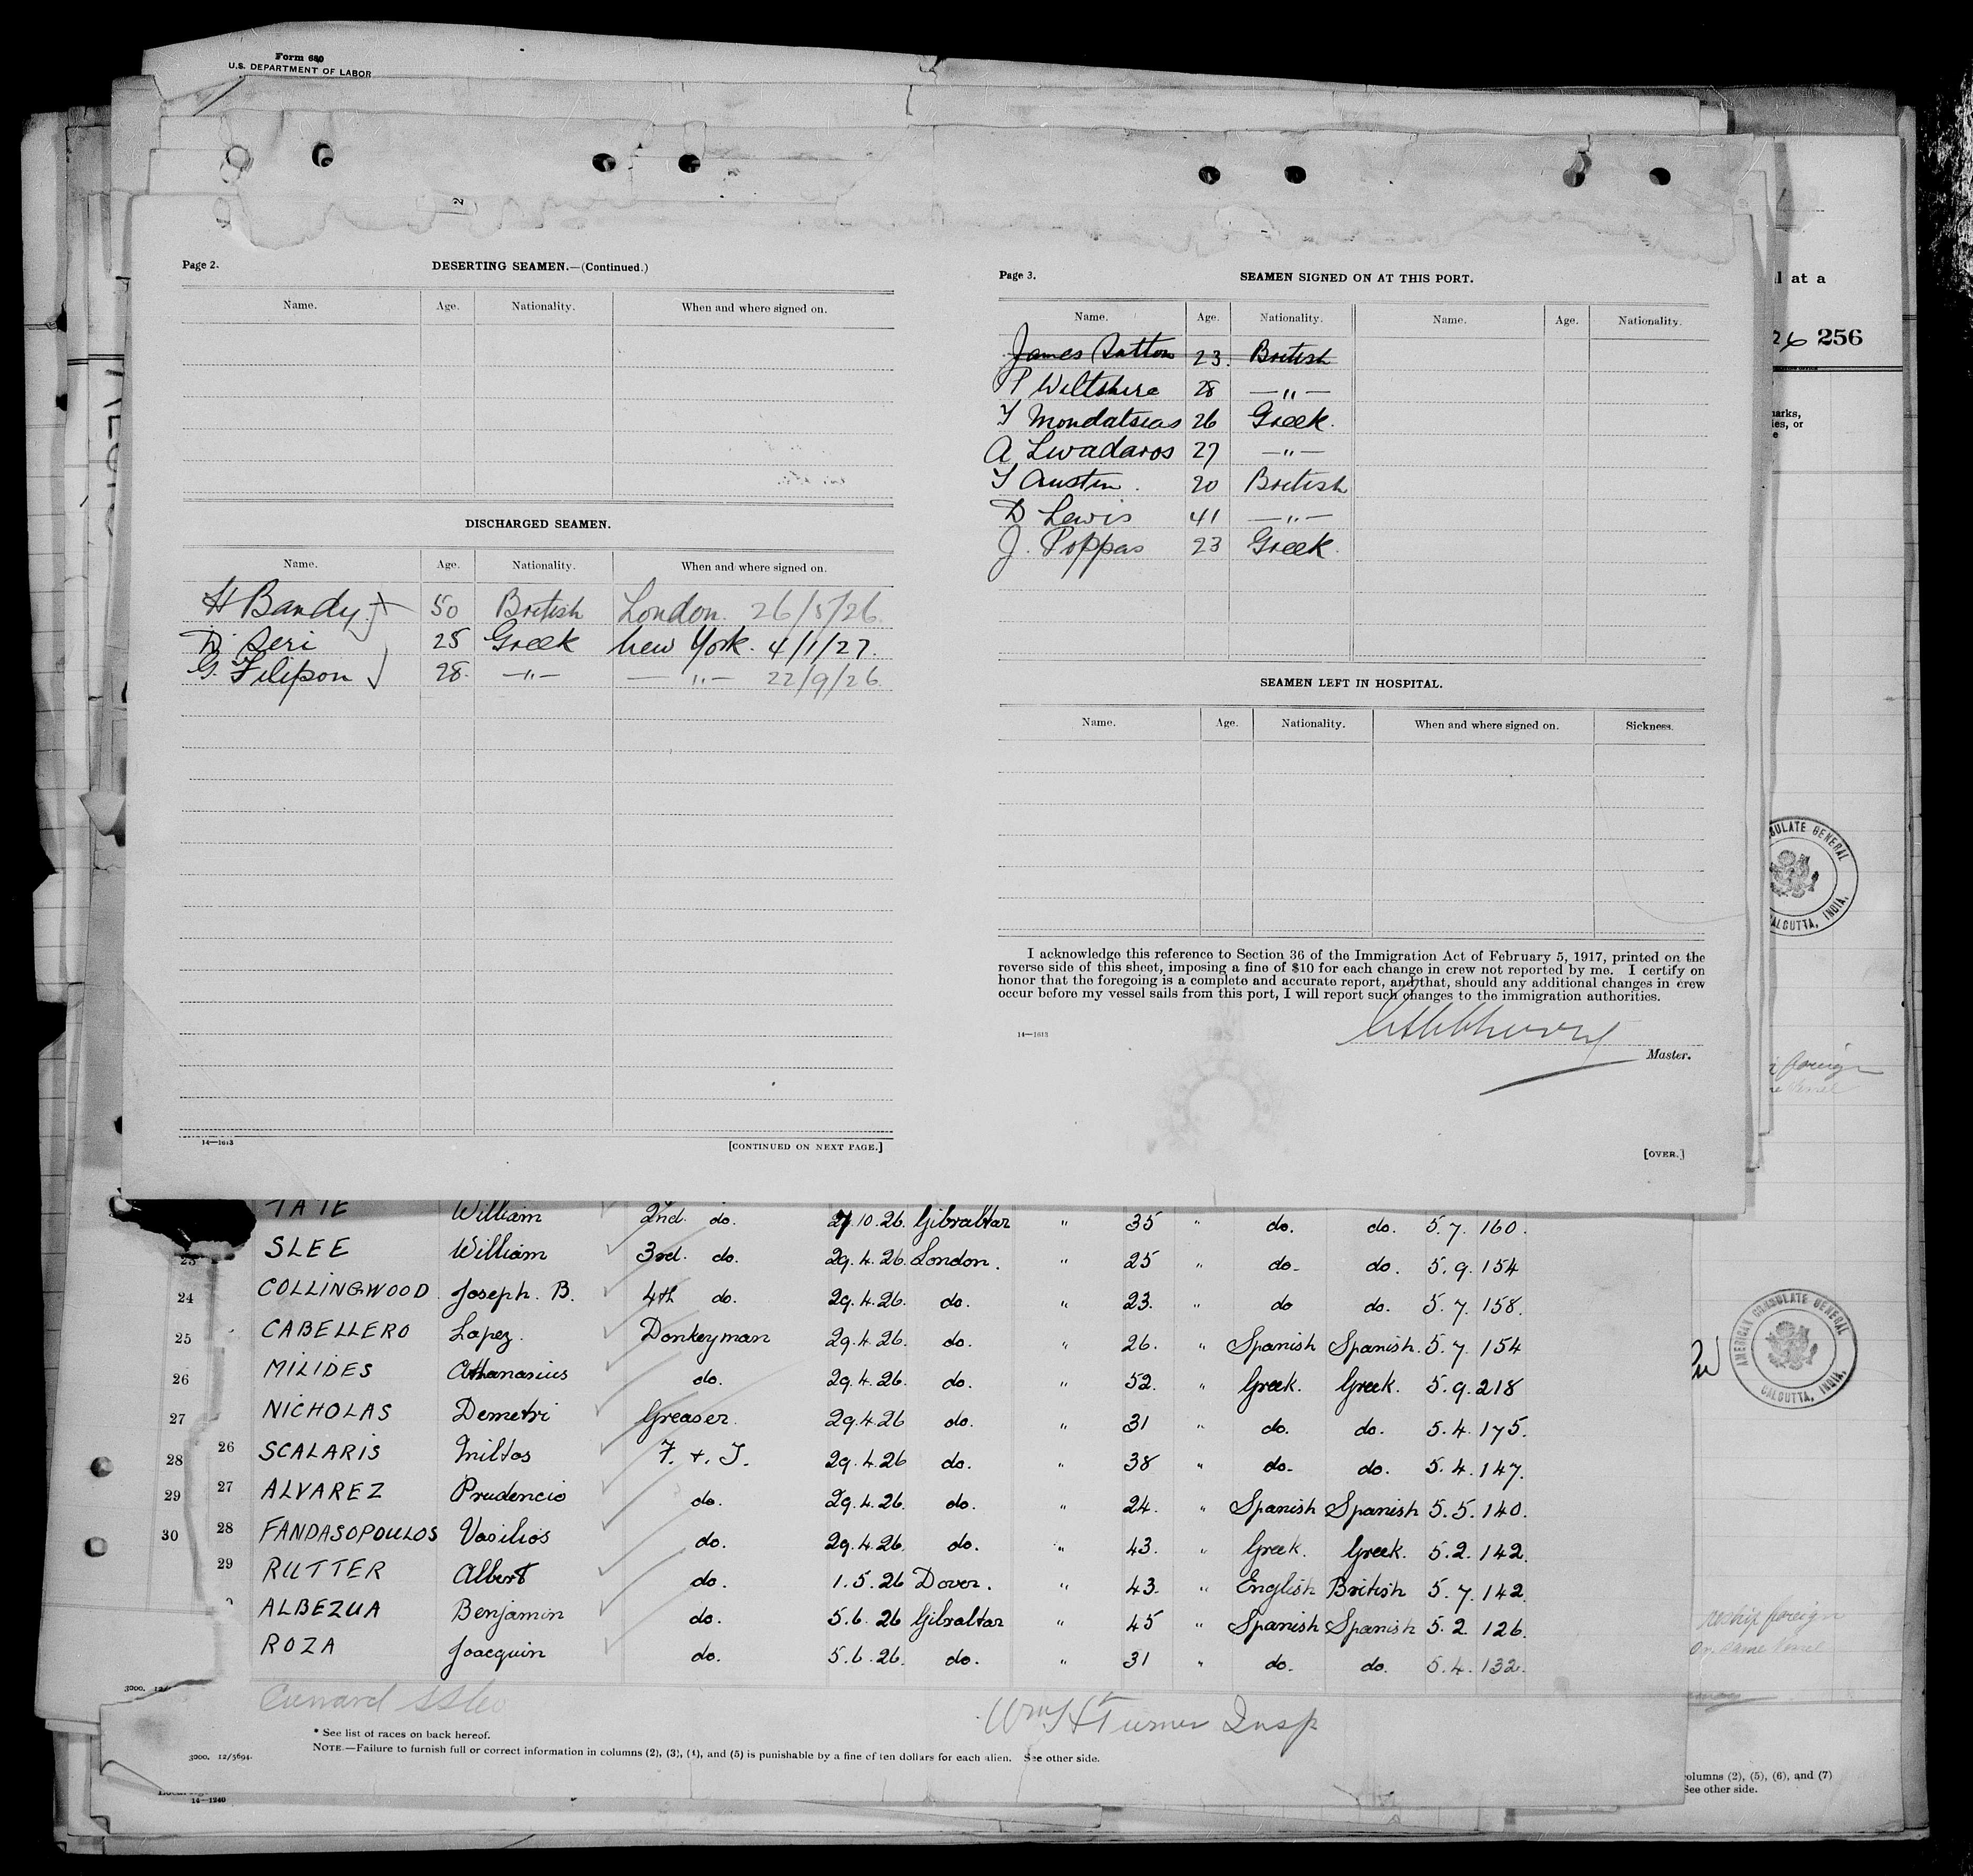 Form 680
U.S. DEPARTMENT OF LABOR
2
Page 2.
DESERTING SEAMEN.—(Continued.)
Name. Age. Nationality. When and where signed on.
DISCHARGED SEAMEN.
Name. Age. Nationality. When and where signed on.
H Bandy 50 British London. 26/5/26.
D. Seri 25 Greek New York. 4/1/27.
G. Filipson 28. —"— —"— 22/9/26.
14—1613
[CONTINUED ON NEXT PAGE.]
Page 3.
SEAMEN SIGNED ON AT THIS PORT.
Name. Age. Nationality. Name. Age. Nationality.
James Sutton 23. British
P Wiltshire 28 —"—
Y Mondatseas 26 Greek.
A Livadaros 27 —"—
Y Austin. 20 British
D Lewis 41 —"—
J. Poppas 23 Greek.
SEAMEN LEFT IN HOSPITAL.
Name. Age. Nationality. When and where signed on. Sickness.
I acknowledge this reference to Section 36 of the Immigration Act of February 5, 1917, printed on the
reverse side of this sheet, imposing a fine of $10 for each change in crew not reported by me. I certify on
honor that the foregoing is a complete and accurate report, and that, should any additional changes in crew
occur before my vessel sails from this port, I will report such changes to the immigration authorities.
14—1613
Master.
[OVER.]
l at a
26 256
arks,
ies, or
e
SULATE GENERAL
CALCUTTA, INDIA.
foreign
AMERICAN CONSULATE GENERAL
CALCUTTA, INDIA.
TATE William 2nd. do. 27.10.26. Gibraltar " 35 " do. do. 5.7. 160.
23 SLEE William 3rd. do. 29.4.26. London. " 25 " do. do. 5.9. 154
24 COLLINGWOOD Joseph. B. 4th do. 29.4.26. do. " 23. " do do. 5.7. 158.
25 CABELLERO Lopez. Donkeyman 29.4.26. do. " 26. " Spanish Spanish. 5.7. 154
26 MILIDES Athanasius do. 29.4.26. do. " 52. " Greek. Greek. 5.9. 218
27 NICHOLAS Demetri Greaser. 29.4.26 do. " 31 " do. do. 5.4. 175.
28 26 SCALARIS Miltos F. + T. 29.4.26 do. " 38 " do. do. 5.4. 147.
29 27 ALVAREZ Prudencio do. 29.4.26. do. " 24. " Spanish Spanish 5.5. 140.
30 28 FANDASOPOULOS Vasilios do. 29.4.26. do. " 43. " Greek. Greek. 5.2. 142.
29 RUTTER Albert do. 1.5.26 Dover. " 43. " English British 5.7. 142.
ALBEZUA Benjamin do. 5.6.26 Gibraltar " 45 " Spanish Spanish 5.2. 126.
ROZA Joacquin do. 5.6.26. do. " 31 " do. do. 5.4. 132.
reship foreign
On same vessel
Cunard SS Co
Wm H Turner Insp
3000. 12/
* See list of races on back hereof.
3000. 12/5694.
NOTE.—Failure to furnish full or correct information in columns (2), (3), (4), and (5) is punishable by a fine of ten dollars for each alien. See other side.
14—1240
columns (2), (5), (6), and (7)
See other side.